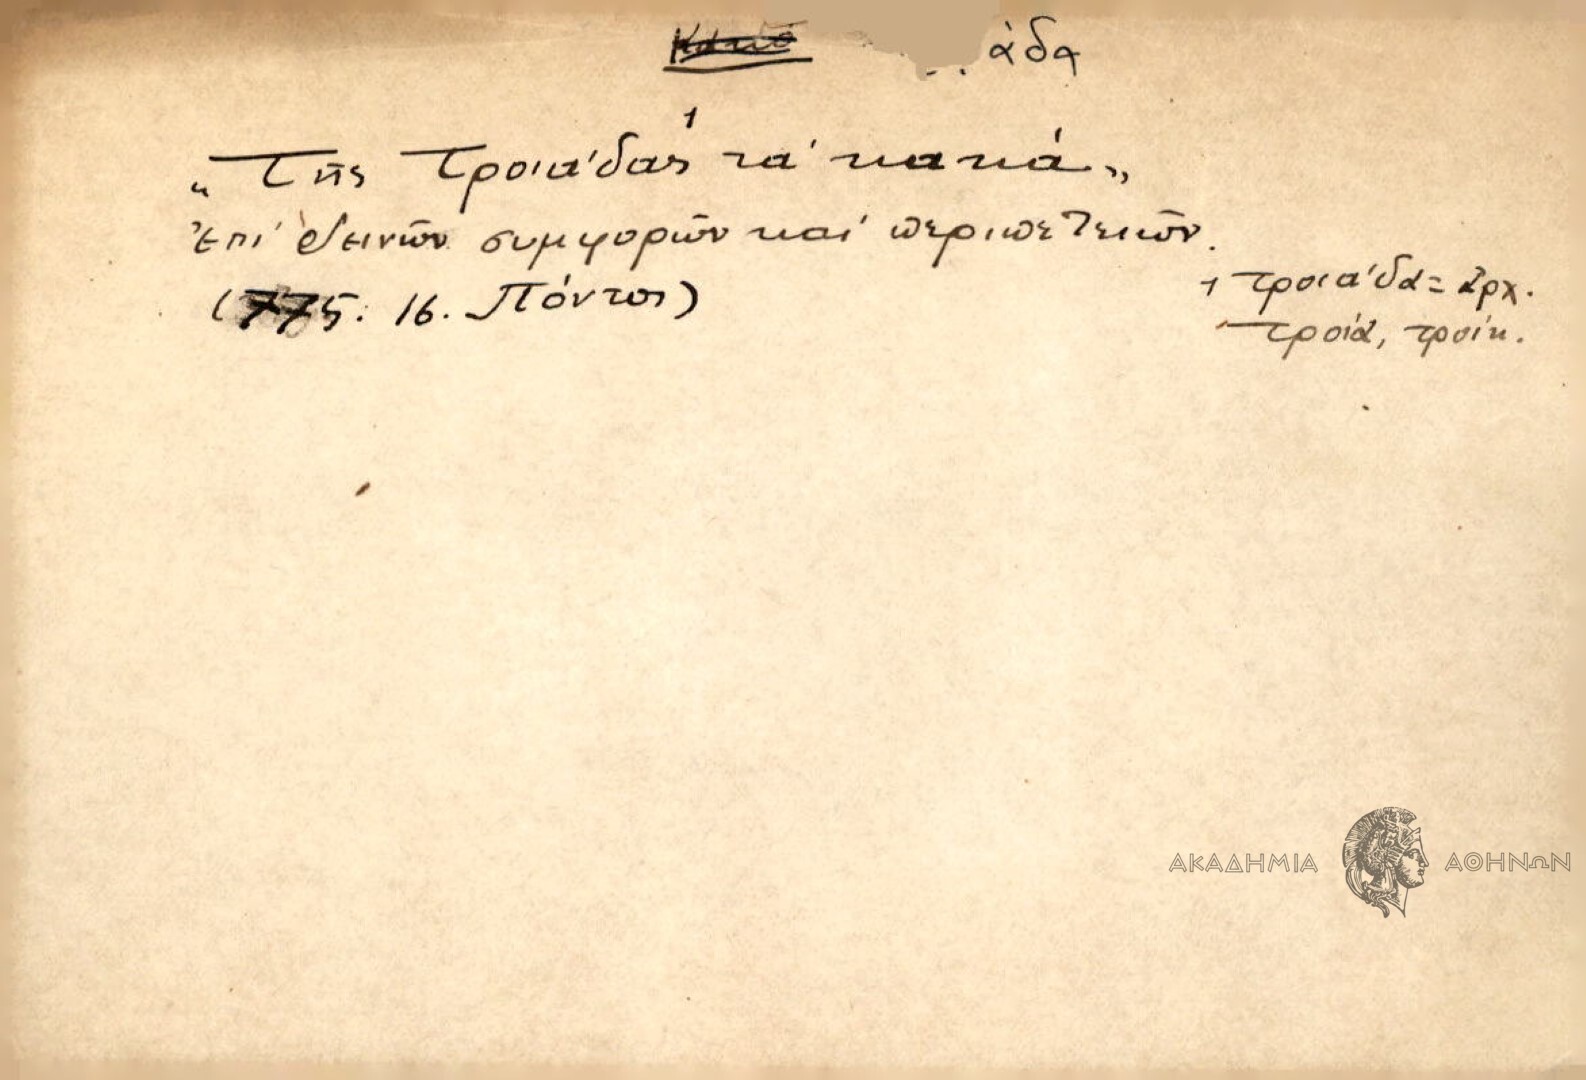 άδα
„Τῆς Τροιάδας¹ τὰ κακά„
Ἐπὶ δεινῶν συμφορῶν καὶ περιπετειῶν.
(775. 16. Πόντος)
1 τροιάδα = ἀρχ.
τροία, τροίη.
ΑΚΑΔΗΜΙΑ ΑΘΗΝΩΝ